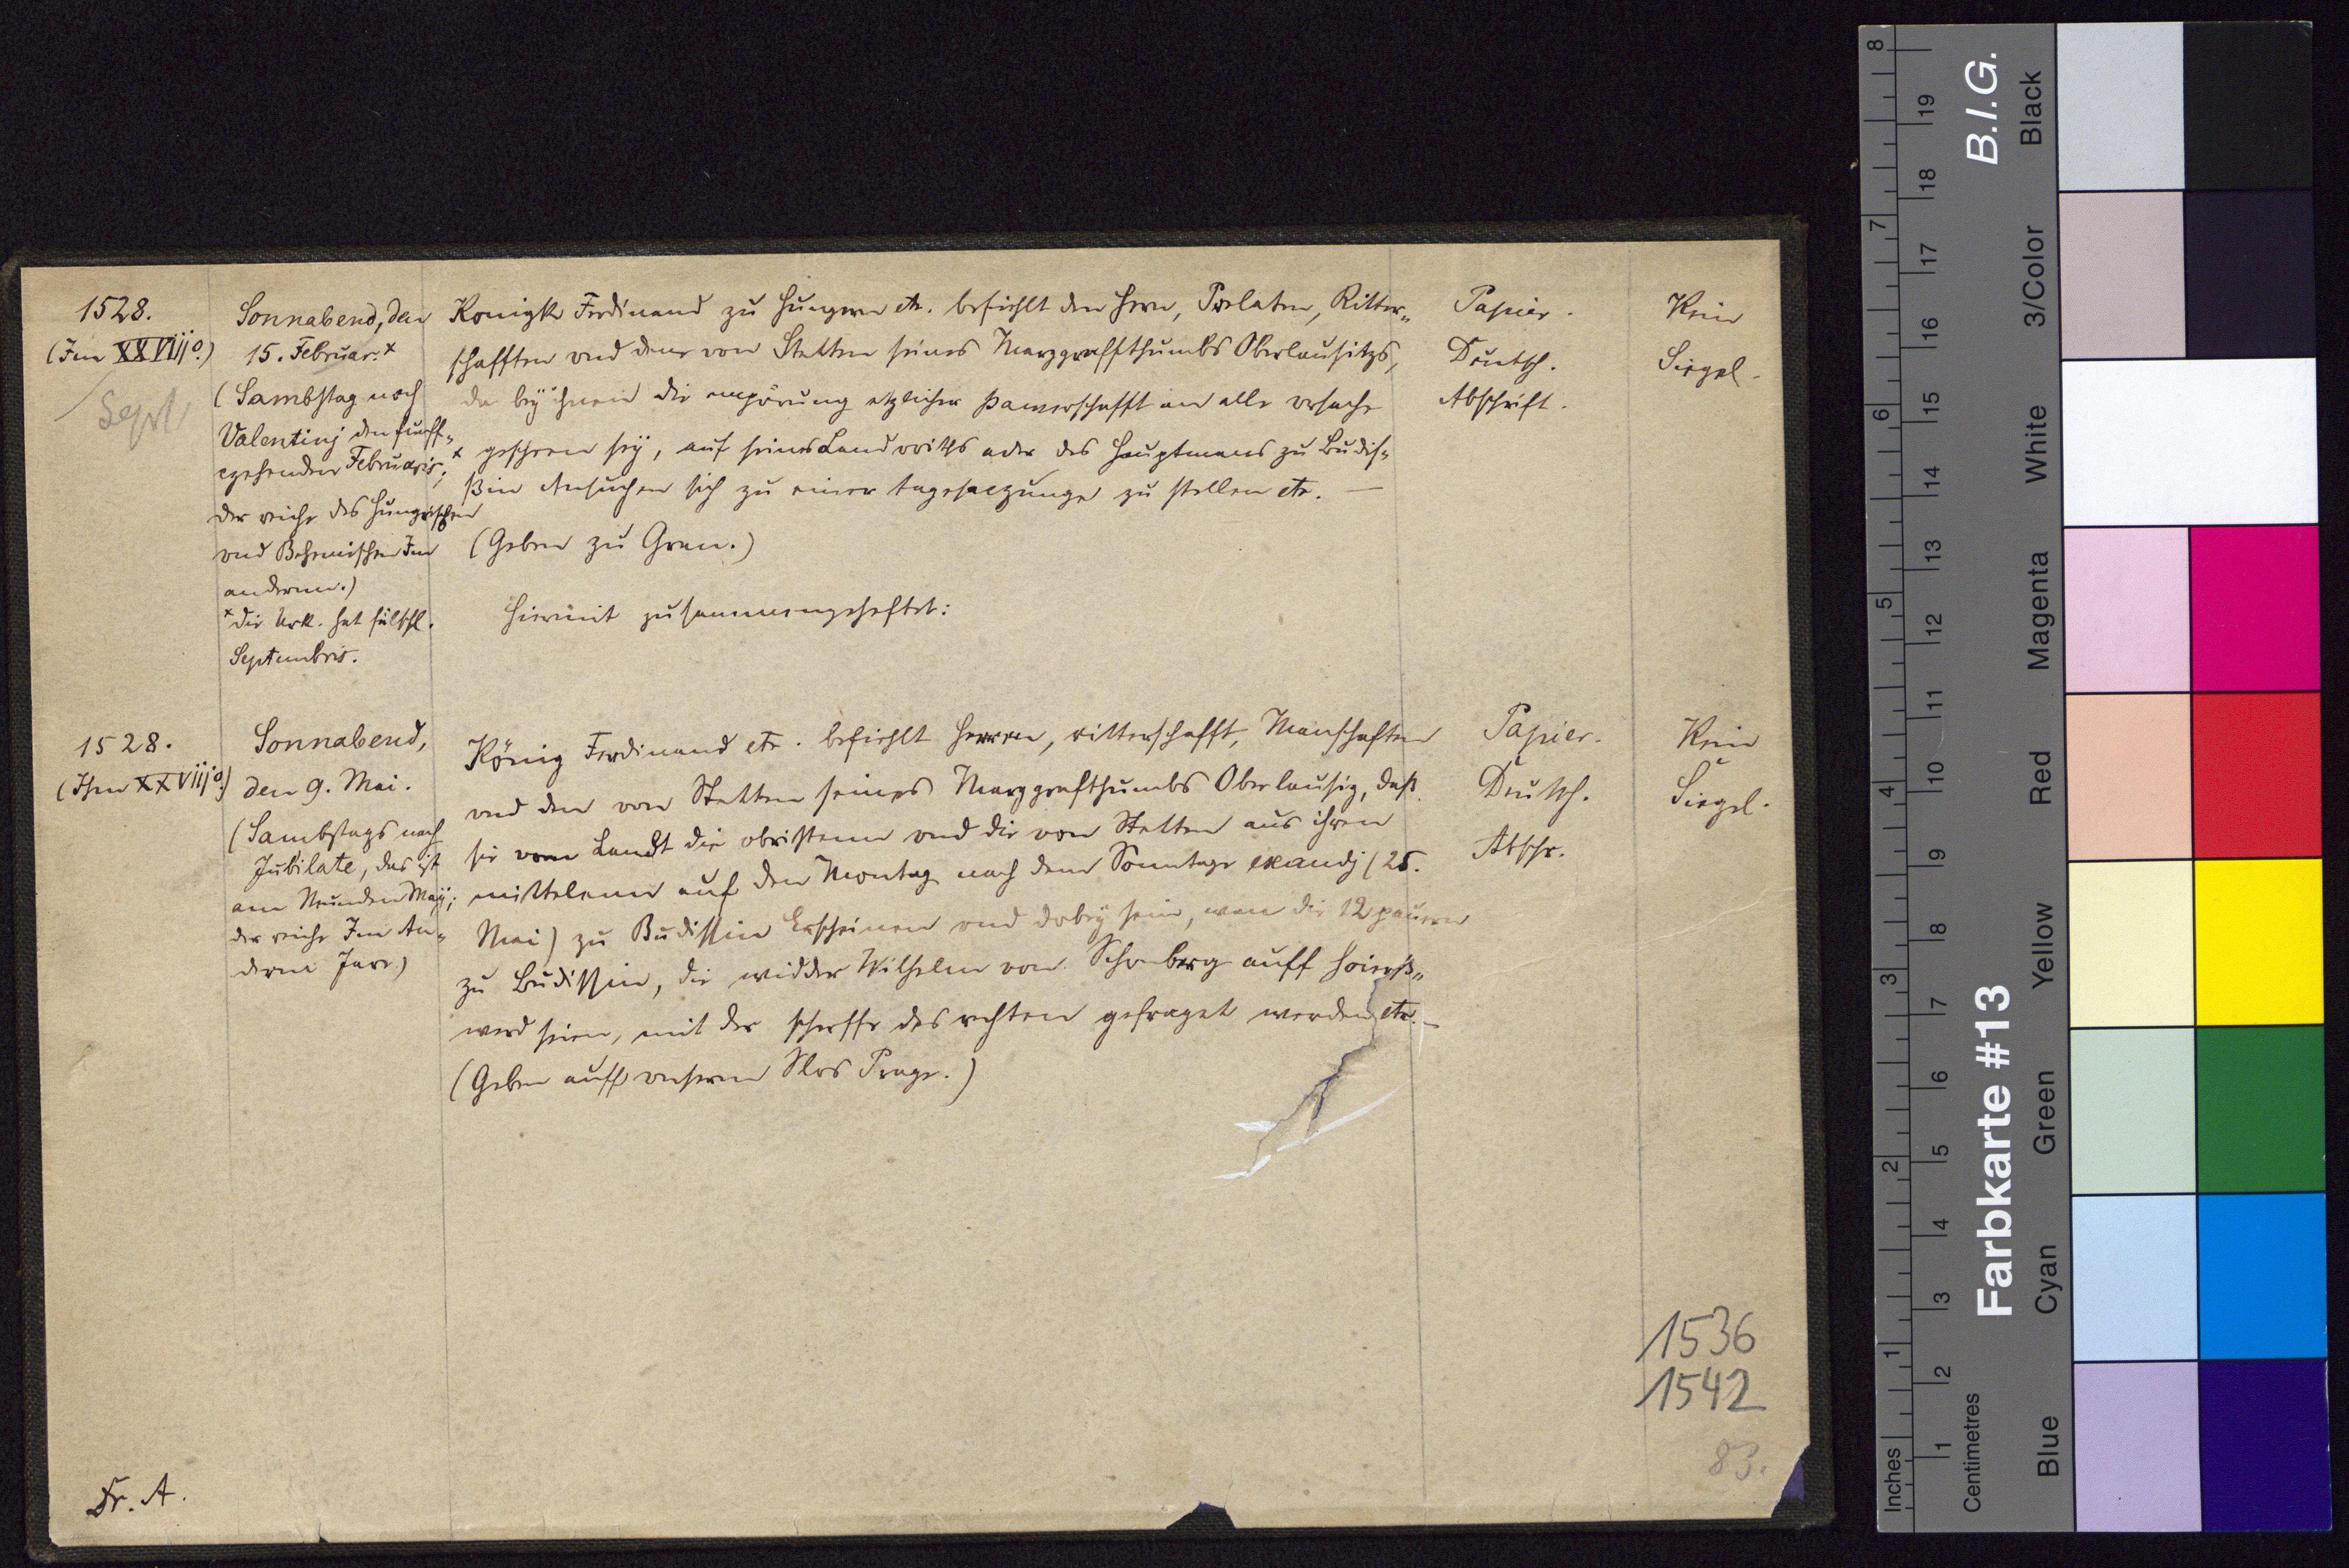 1528.
(Im XXVIIJo.)
Sept
Sonnabend, den
15. Februar. x
(Sambstag noch
Valentinj den funff„
czehenden Februaris;
der reiche des Hungrischen
vnd Behemischen Im
andernn.)
x die Urk. hat fälschl.
Septembris.
Konigk Ferdinand zu Hungern etc. befiehlt den Hern, Prelaten, Ritter„
schafften vnd denn von Stetten seines Marggraffthumbs Oberlausitzs,
da bÿ ihnen die empörung etzlicher pawerschafft an alle vrsache
x gescheen sey, auf seines Landvoits oder des Hauptmans zu Budis„
sin Ansuchen sich zu einer tagesaczunge zu stellen etc. —
(Geben zu Gran.)
Hiermit zusammengeheftet:
Papier.
Deutsch.
Abschrift.
Kein
Siegel.
1528.
(Ihm XXVIIJo.)
Sonnabend,
den 9. Mai.
(Sambstags nach
Jubilate, das ist
am Neunden Maÿ;
der reiche Im An„
dernn Jare)
König Ferdinand etc. befiehlt Herren, ritterschafft, Manschaften
vnd den von Stetten seines Marggrafthumbs Oberlausig, daß
sie vom Landt die obristenn vnd die von Stetten aus ihren
mittelenn auf den Montag nach dem Sonntage exaudj (25.
Mai) zu Budissin Erscheinen vnd dobeÿ sein, wan die 12 pauern
zu Budissin, die widder Wilhelm von Schonberg auff
werd seien, mit der scherffe des rechten gefraget werden etc. —
(Geben auff vnserm Slos Prage.)
Papier.
Deutsch.
Abschr.
Kein
Siegel.
1536
1542
83.
Dr. A.
Inches
Centimetres
1 2 3 4 5 6 7 8
1 2 3 4 5 6 7 8 9 10 11 12 13 14 15 16 17 18 19
Farbkarte #13
B.I.G.
Blue
Cyan
Green
Yellow
Red
Magenta
White
3/Color
Black